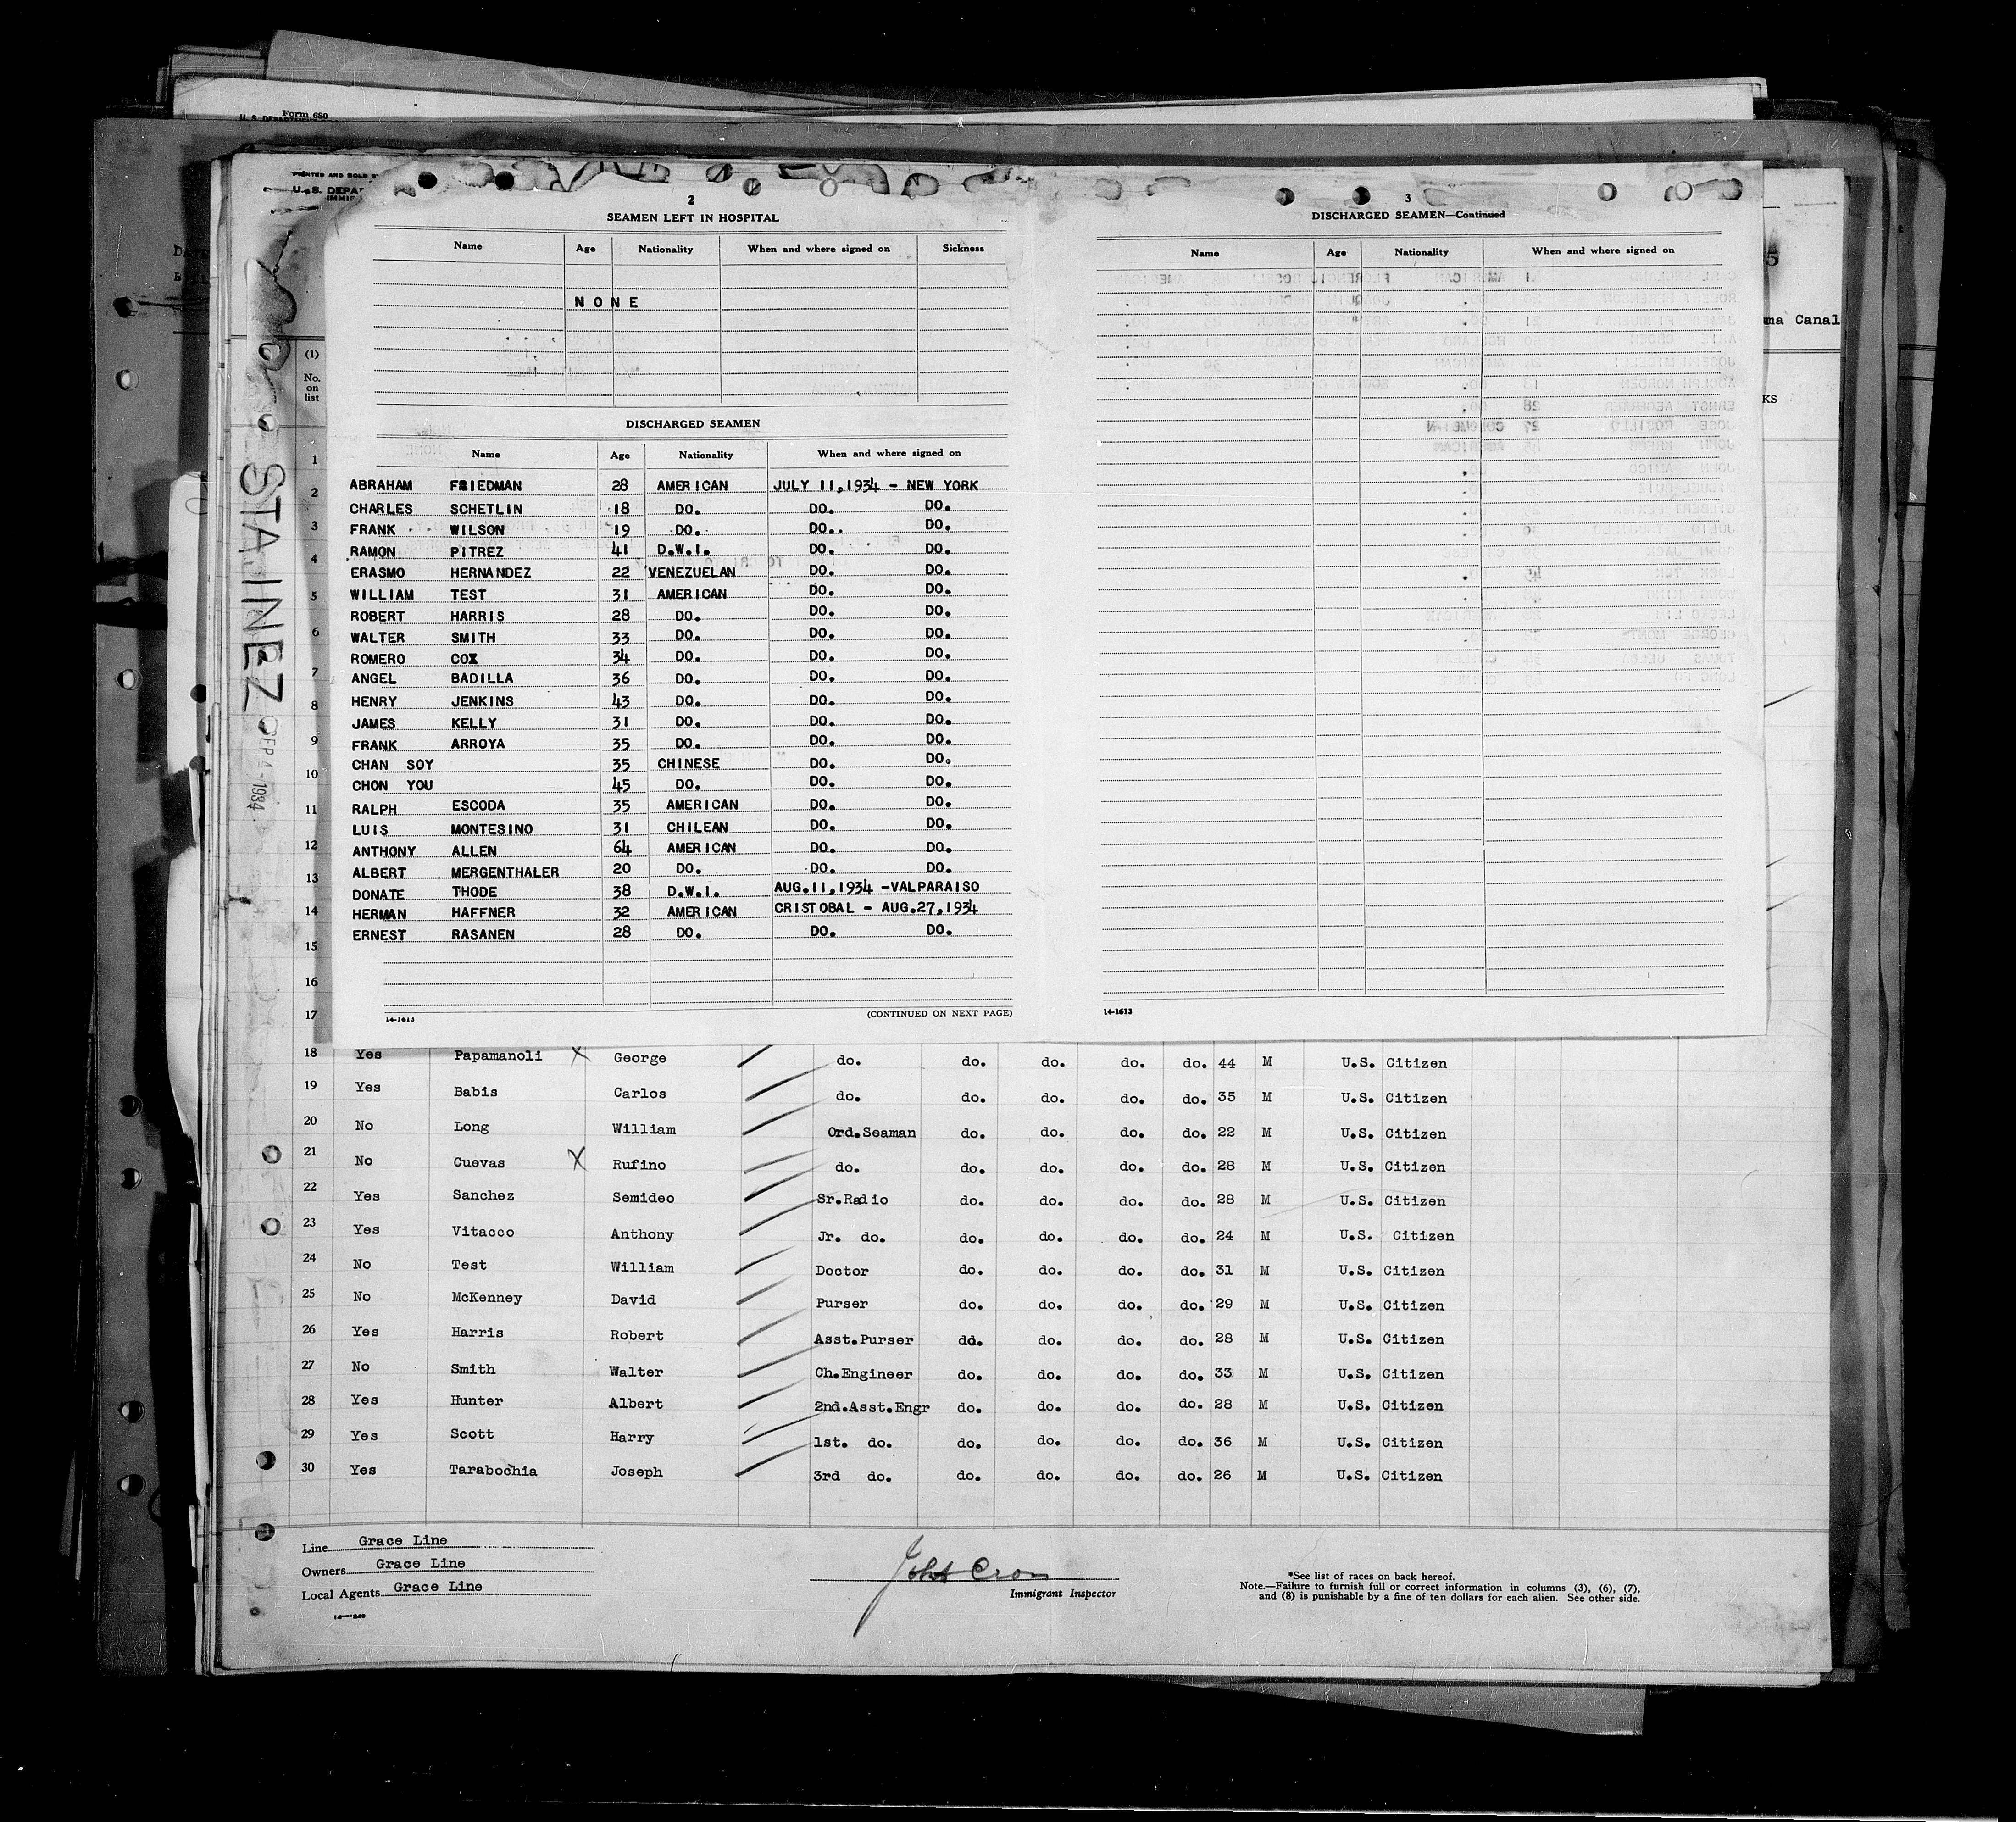 Form 680
PRINTED AND SOLD
U. S. DEPA
IMMIG
2
SEAMEN LEFT IN HOSPITAL
Name Age Nationality When and where signed on Sickness
NONE
DISCHARGED SEAMEN
Name Age Nationality When and where signed on
ABRAHAM FRIEDMAN 28 AMERICAN JULY 11,1934 - NEW YORK
CHARLES SCHETLIN 18 DO. DO. DO.
FRANK WILSON 19 DO. DO. DO.
RAMON PITREZ 41 D.W.I. DO. DO.
ERASMO HERNANDEZ 22 VENEZUELAN DO. DO.
WILLIAM TEST 31 AMERICAN DO. DO.
ROBERT HARRIS 28 DO. DO. DO.
WALTER SMITH 33 DO. DO. DO.
ROMERO COX 34 DO. DO. DO.
ANGEL BADILLA 36 DO. DO. DO.
HENRY JENKINS 43 DO. DO. DO.
JAMES KELLY 31 DO. DO. DO.
FRANK ARROYA 35 DO. DO. DO.
CHAN SOY 35 CHINESE DO. DO.
CHON YOU 45 DO. DO. DO.
RALPH ESCODA 35 AMERICAN DO. DO.
LUIS MONTESINO 31 CHILEAN DO. DO.
ANTHONY ALLEN 64 AMERICAN DO. DO.
ALBERT MERGENTHALER 20 DO. DO. DO.
DONATE THODE 38 D.W.I. AUG.11,1934 -VALPARAISO
HERMAN HAFFNER 32 AMERICAN CRISTOBAL - AUG.27,1934
ERNEST RASANEN 28 DO. DO. DO.
14-1613 (CONTINUED ON NEXT PAGE)
3
DISCHARGED SEAMEN—Continued
Name Age Nationality When and where signed on
14-1613
5
ma Canal
KS
STA INEZ
1934
(1)
No.
on
list
1
2
3
4
5
6
7
8
9
10
11
12
13
14
15
16
17
18 Yes Papamanoli X George do. do. do. do. do. 44 M U.S. Citizen
19 Yes Babis Carlos do. do. do. do. do. 35 M U.S. Citizen
20 No Long William Ord.Seaman do. do. do. do. 22 M U.S. Citizen
21 No Cuevas X Rufino do. do. do. do. do. 28 M U.S. Citizen
22 Yes Sanchez Semideo Sr.Radio do. do. do. do. 28 M U.S. Citizen
23 Yes Vitacco Anthony Jr. do. do. do. do. do. 24 M U.S. Citizen
24 No Test William Doctor do. do. do. do. 31 M U.S. Citizen
25 No McKenney David Purser do. do. do. do. 29 M U.S. Citizen
26 Yes Harris Robert Asst.Purser dd. do. do. do. 28 M U.S. Citizen
27 No Smith Walter Ch.Engineer do. do. do. do. 33 M U.S. Citizen
28 Yes Hunter Albert 2nd.Asst.Engr do. do. do. do. 28 M U.S. Citizen
29 Yes Scott Harry 1st. do. do. do. do. do. 36 M U.S. Citizen
30 Yes Tarabochia Joseph 3rd do. do. do. do. do. 26 M U.S. Citizen
Line Grace Line
Owners Grace Line
Local Agents Grace Line
14—1240
John Cron
Immigrant Inspector
*See list of races on back hereof.
Note.—Failure to furnish full or correct information in columns (3), (6), (7),
and (8) is punishable by a fine of ten dollars for each alien. See other side.